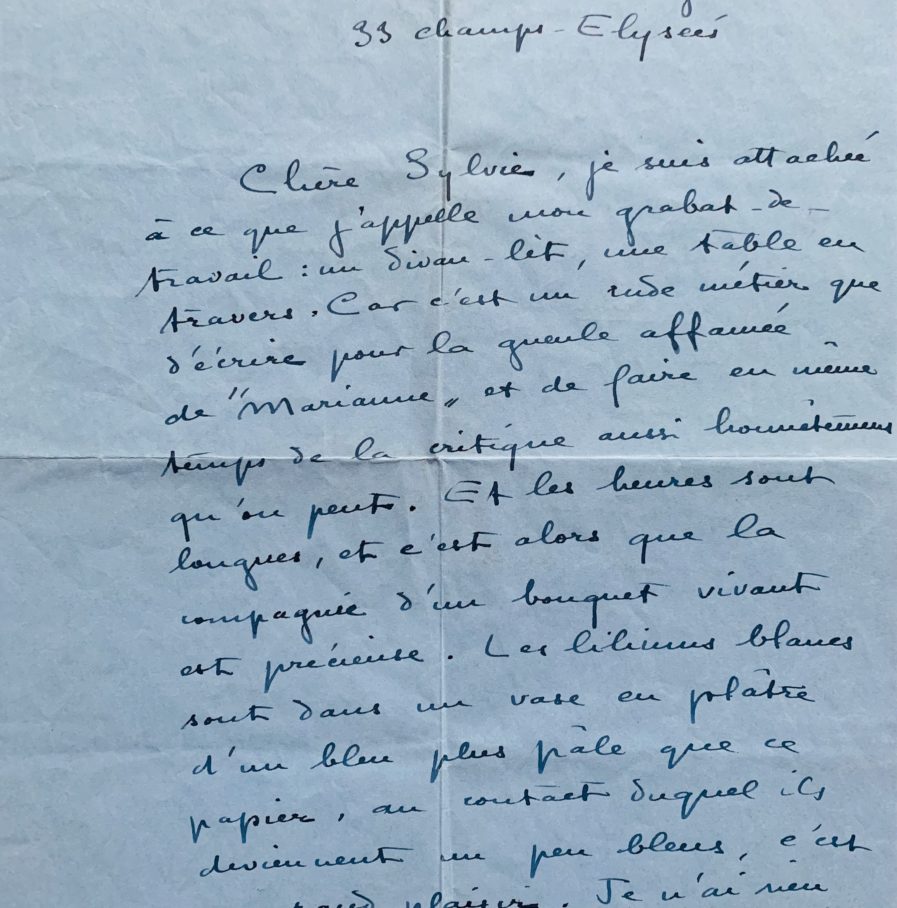 33 champs-Elysées
Chère Sylvie, je suis attachée
à ce que j'appelle mon grabat-de-
travail : un divan-lit, une table en
travers. Car c'est un rude métier que
d'écrire pour la gueule affamée
de "Marianne" et de faire en même
temps de la critique aussi honnêtement
qu'on peut. Et les heures sont
longues, et c'est alors que la
compagnie d'un bouquet vivant
est précieuse. Les liliums blancs
sont dans un vase en plâtre
d'un bleu plus pâle que ce
papier, au contact duquel ils
deviennent un peu bleus, c'est
plaisir. Je n'ai rien